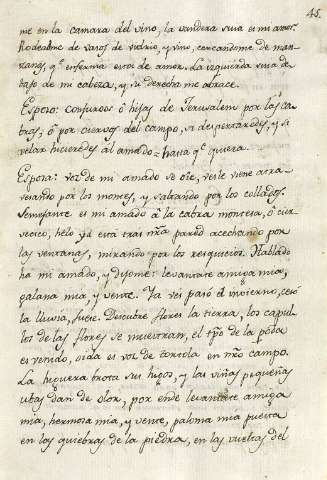 45.
me en la camara del vino, la vandera suia es mi amor.
Rodeadme de vasos de vidrio, y vino, cercandome de man-
zanas, q.e enferma estoi de amor. La izquierda suia de-
bajo de mi cabeza, y su derecha me abrace.
Esposo: conjuroos ô hijas de Jerusalem por las ca-
bras, ô por ciervos del campo, si despertaredes, y si
velar hicieredes al amado: hasta q.e quiera.
Esposa: voz de mi amado se oïe, veisle viene atra-
vesando por los montes, y saltando por los collados.
Semejante es mi amado â la cabra montesa, ô cier-
vecico, helo ya está tras nra pared acechando por
las ventanas, mirando por los resquicios. Hablado
ha mi amado, y dijome: levantate amiga mia,
galana mia, y vente. Ya ves pasó el invierno, cesó
la lluvia, fuese. Descubre flores la tierra, los capu-
llos de las flores se muestran, el tpo de la poda
es venido, oida es voz de tortola en nro campo.
La higuera brota sus higos, y las viñas pequeñas
ubas dan de olor, por ende levantate amiga
mia, hermosa mia, y vente, paloma mia puesta
en las quiebras de la piedra, en las vueltas del